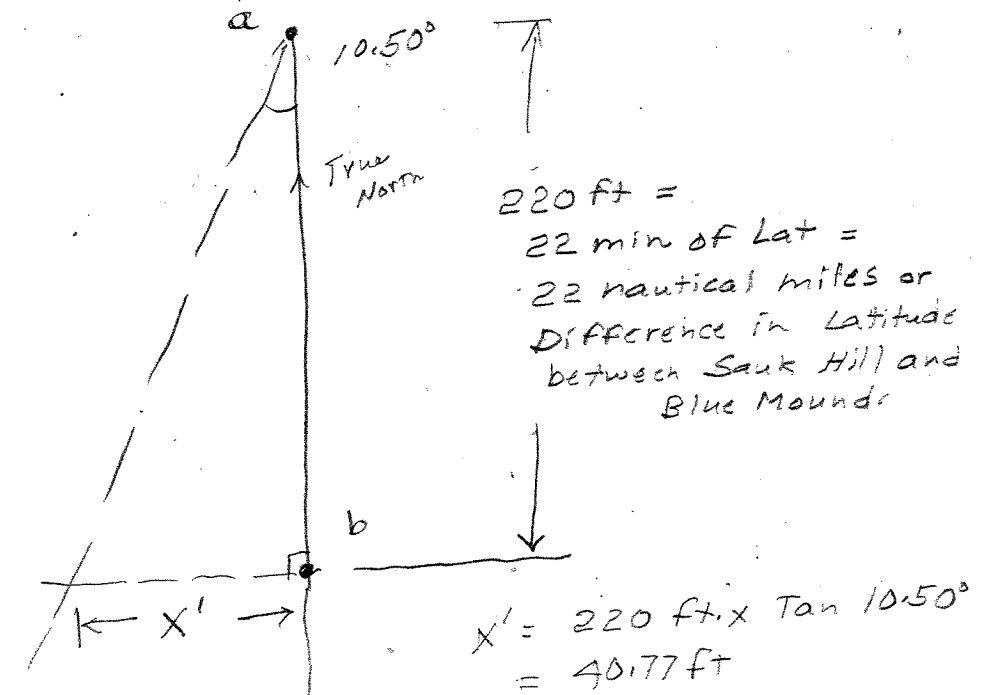 a
10.50°
True
North
220 ft =
22 min of Lat =
22 nautical miles or
Difference in Latitude
between Sauk Hill and
Blue Mounds
b
x'
x' = 220 ft. x Tan 10.50°
= 40.77 ft